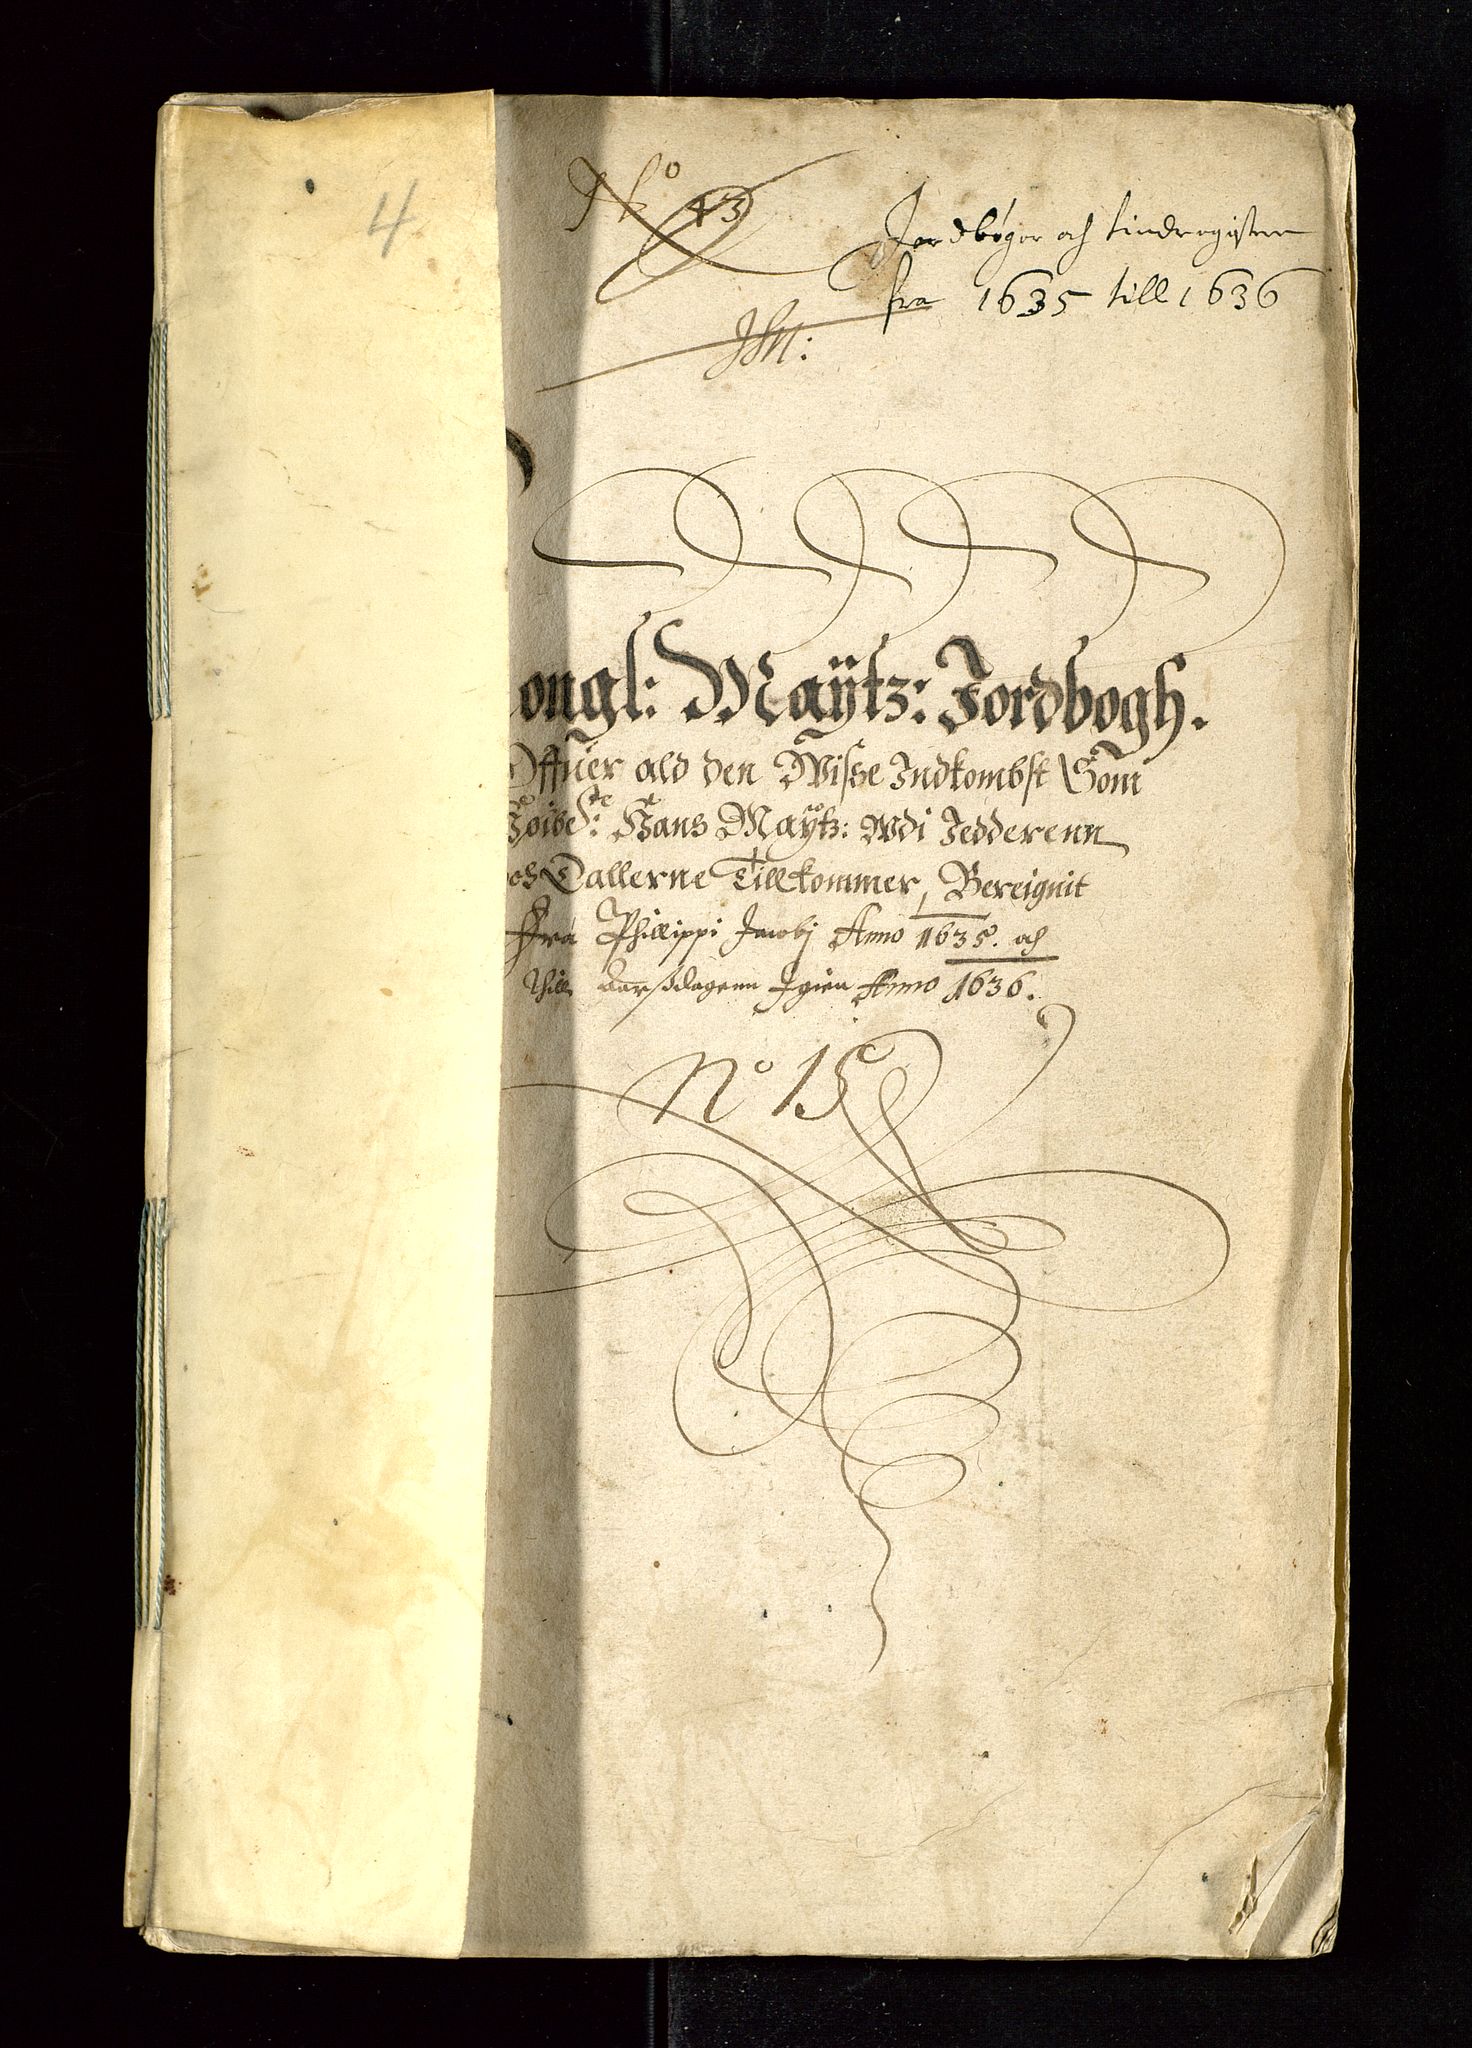 4
No 13
Jordbøger och tiendregister
fra 1635 till 1636
ongl: Maÿtz: Jordbogh.
Offuer ald den Wisse Indkombst Som
Høibe^te: Hans Maÿtz: Udi Jedderenn
och Dallerne Tillkommer, Bereignit
Fra Phillippi Jacobj Anno 1635. och
till Aarsdagenn Igien Anno 1636.
No 15